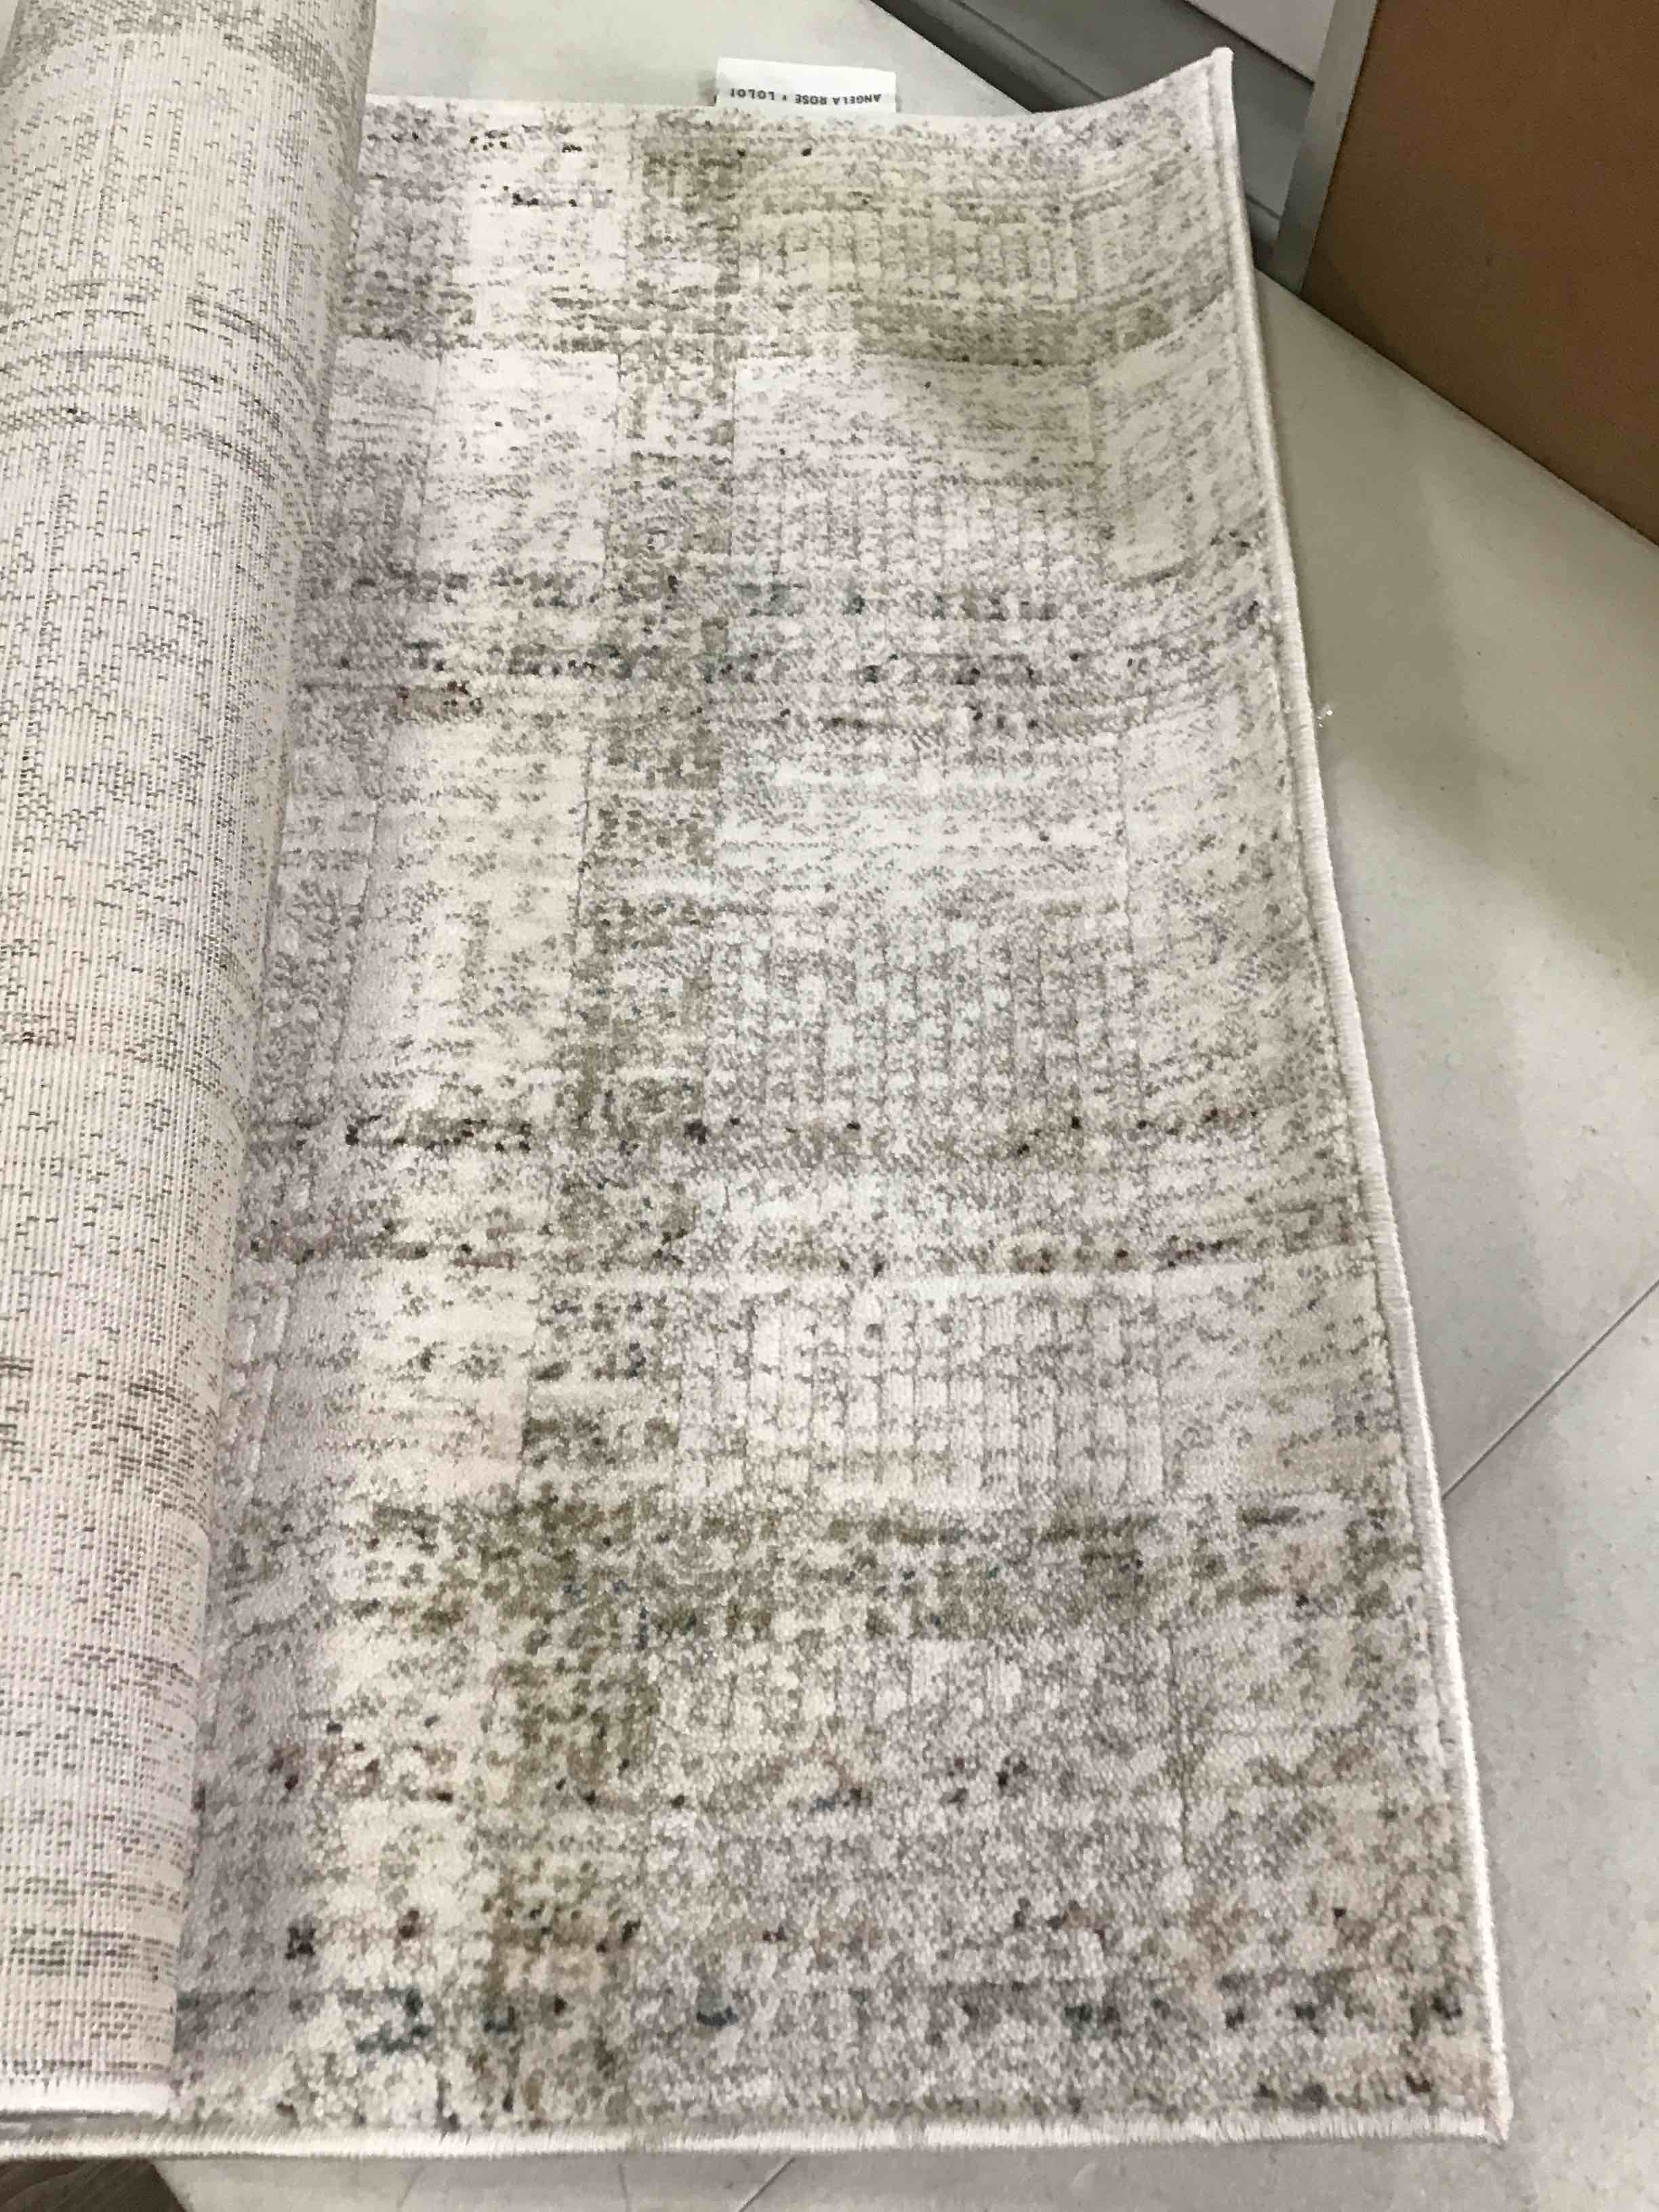 ANGELA ROSE × LOLOI